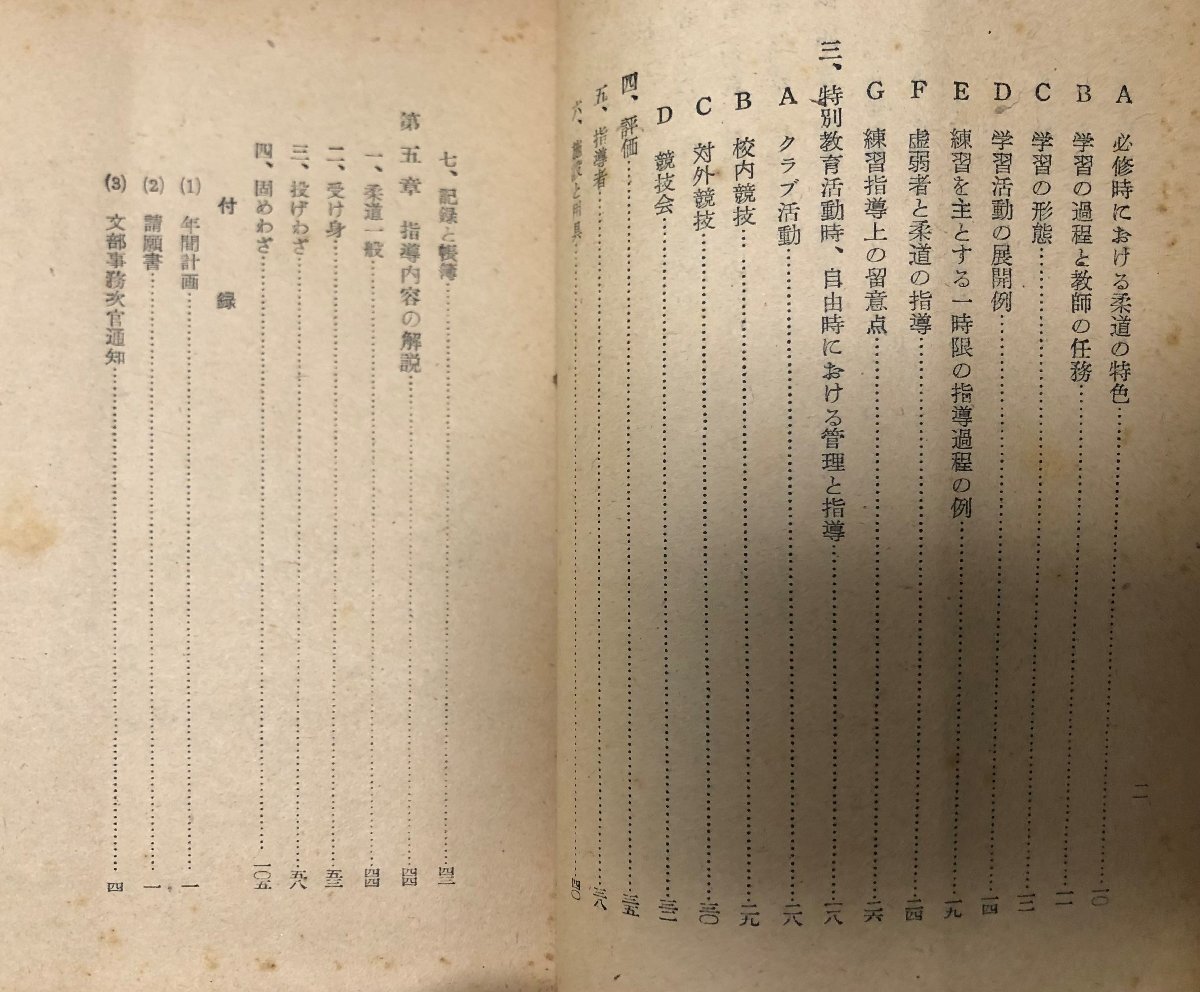 二
A 必修時における柔道の特色……一〇
B 学習の過程と教師の任務……一一
C 学習の形態……一二
D 学習活動の展開例……一四
E 練習を主とする一時限の指導過程の例……一九
F 虚弱者と柔道の指導……二四
G 練習指導上の留意点……二六
三、特別教育活動時、自由時における管理と指導……二八
A クラブ活動……二八
B 校内競技……二九
C 対外競技……三〇
D 競技会……三二
四、評価……三五
五、指導者……三八
六、施設と用具……四〇
七、記録と帳簿……四三
第五章 指導内容の解説……四四
一、柔道一般……四四
二、受け身……五三
三、投げわざ……五八
四、固めわざ……一〇五
付録
(1) 年間計画……一
(2) 請願書……一
(3) 文部事務次官通知……四